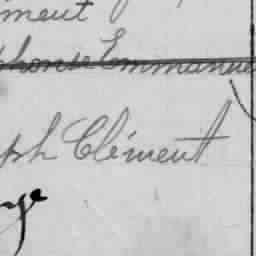 ment
phonse Emmanue
ph Clément
ge